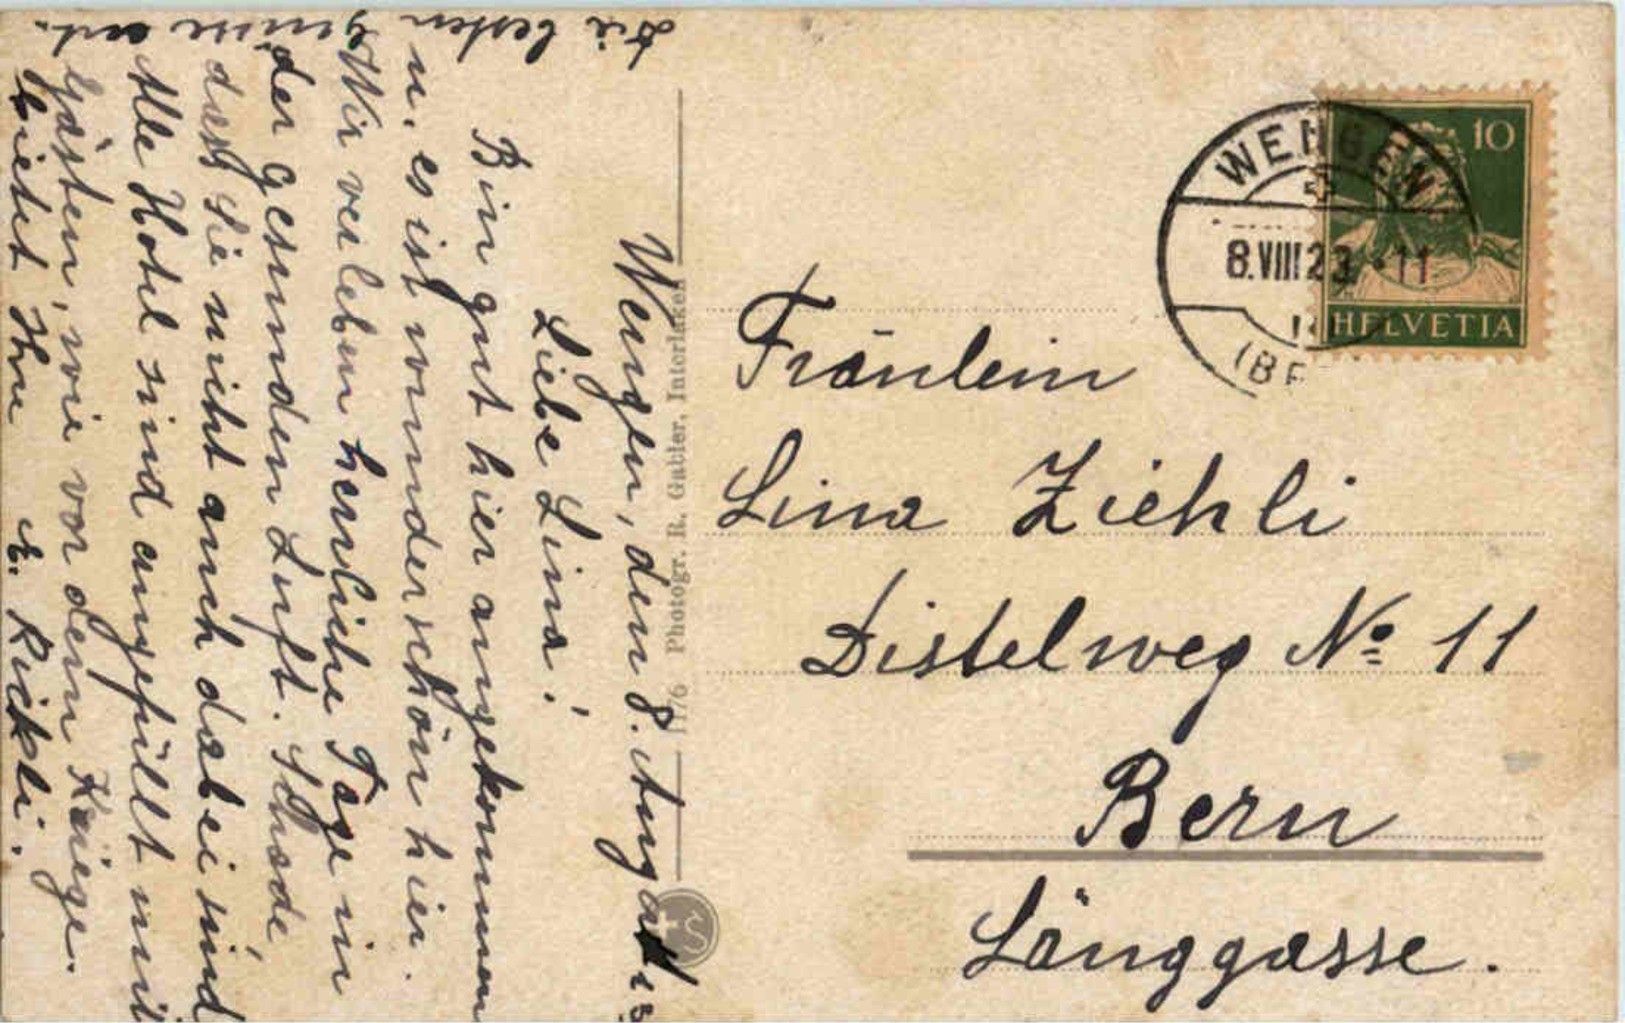 Wengen, den 8. August 23
Liebe Lina!
Bin gut hier angekommen
u. es ist wunderschön hier.
Wir verleben herrliche Tage in
der gesunden Luft. Schade,
dass Sie nicht auch dabei sind
Alle Hotel sind angefüllt mit
Gästen, wie vor dem Kriege.
bietet Ihnen E. Rickli.
Die besten Grüsse ent-
1176 Photogr. R. Gabler, Interlaken
WENGEN
8.VIII 23. 11
(BE
10
HELVETIA
Fräulein
Lina Ziehli
Distelweg No 11
Bern
Länggasse.